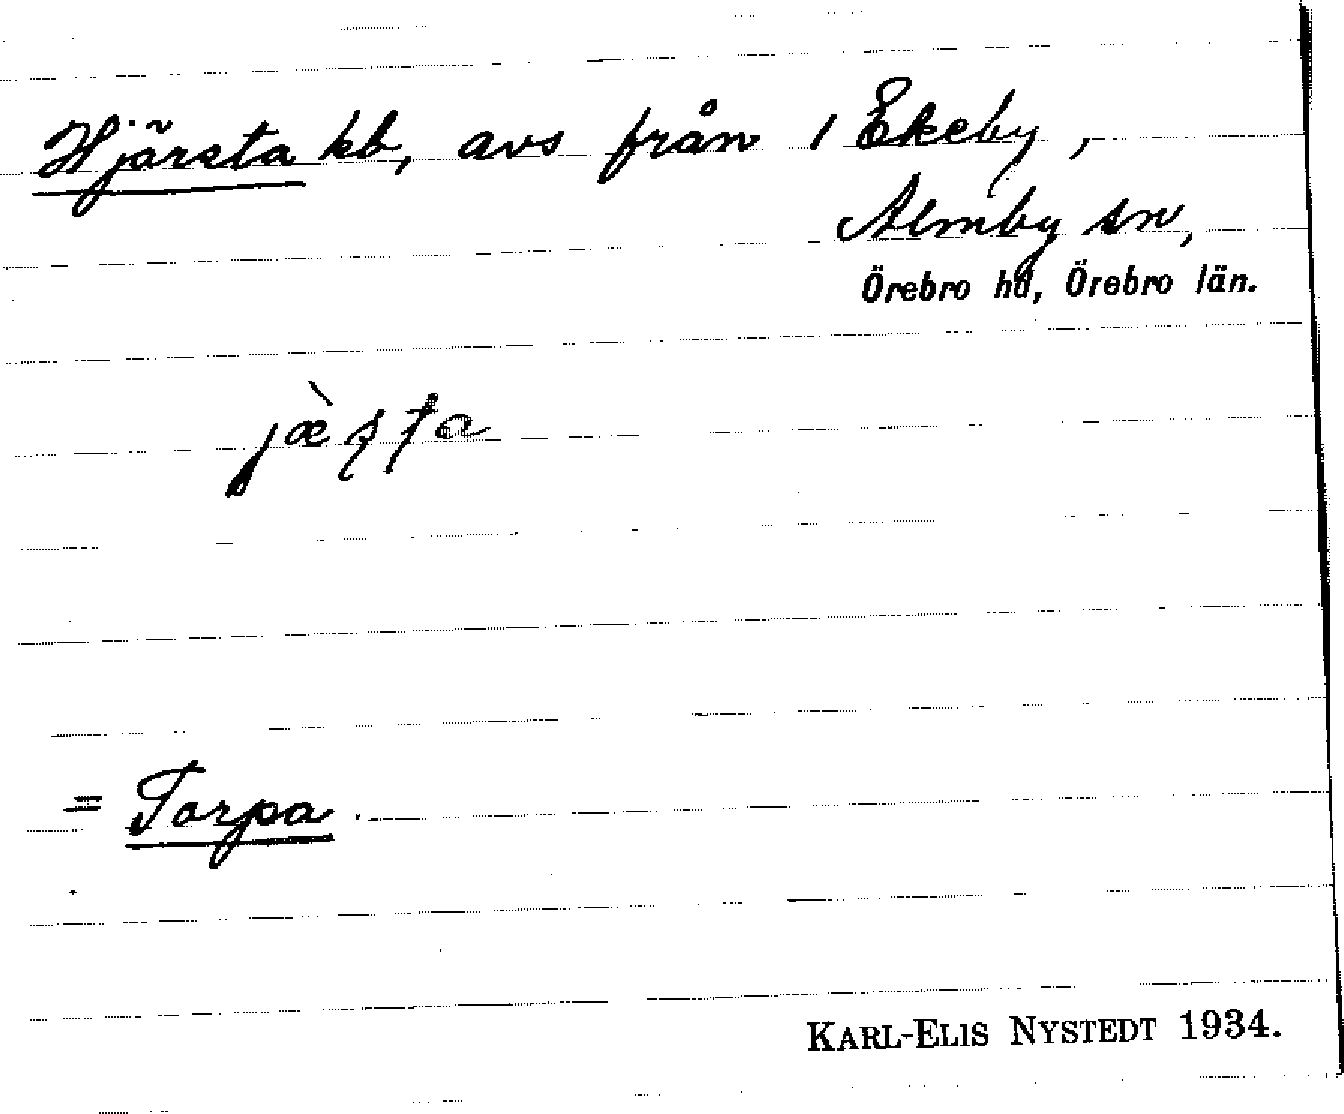 Hjärsta kb, avs från 1 Ekeby,
Almby sn,
Örebro hd, Örebro län.
= Torpa.
KARL-ELIS NYSTEDT 1934.